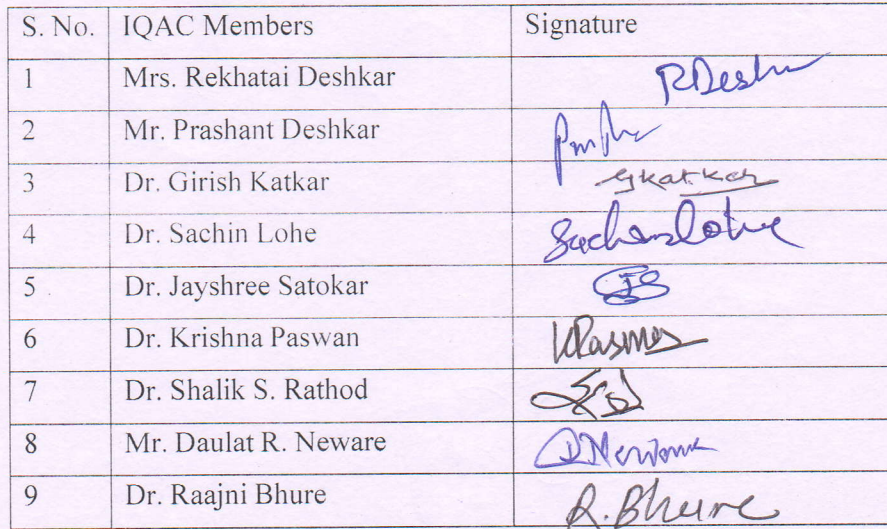 S. No. IQAC Members Signature
1 Mrs. Rekhatai Deshkar RDeshm
2 Mr. Prashant Deshkar
3 Dr. Girish Katkar Gkatkar
4 Dr. Sachin Lohe Sachinlohe
5 Dr. Jayshree Satokar
6 Dr. Krishna Paswan
7 Dr. Shalik S. Rathod
8 Mr. Daulat R. Neware
9 Dr. Raajni Bhure R. Bhure